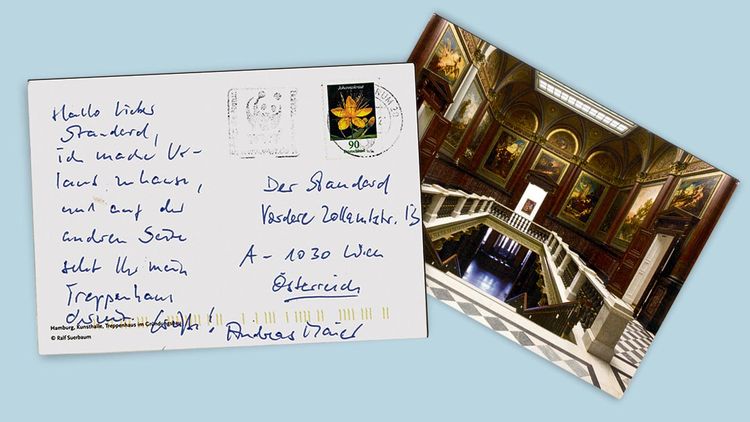 Hallo liebes
Standard,
ich mache Ur-
laub zuhause,
und auf der
andren Seite
seht Ihr mein
Treppenhaus
Grüße! Andreas Maier
Der Standard
Vordere Zollamtsstr. 13
A - 1030 Wien
Österreich
Johanniskraut
90
Deutschland
Hamburg, Kunsthalle, Treppenhaus im
© Ralf Suerbaum